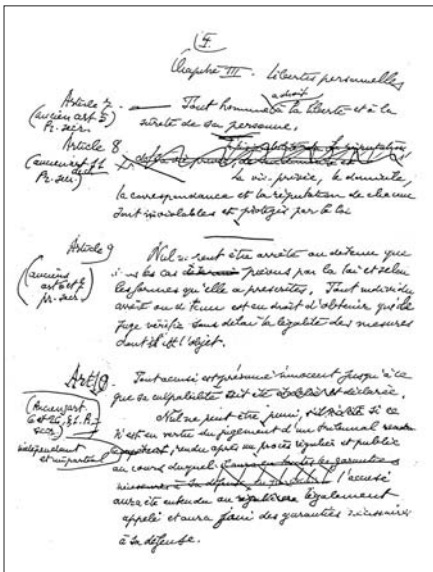 4.
Chapitre III - Libertés personnelles
Article 7 — Tout homme a droit à la liberté et à la
(ancien art 5) sûreté de sa personne.
Pr. secr.
Article 8
(ancien art 11 La vie privée, le domicile,
Pr. secr.) la correspondance et la réputation de chacun
sont inviolables et protégés par la loi
Article 9 Nul ne peut être arrêté ou détenu que
(anciens les cas prévus par la loi et selon
art 6 et 7 les formes qu'elle a prescrites. Tout individu
pr. secr.) arrêté ou détenu est en droit d'obtenir que le
juge vérifie sans délai la légalité des mesures
dont il est l'objet.
Art 10. Tout accusé est présumé innocent jusqu'à ce
que sa culpabilité ait été déclarée.
(Ancien art Nul ne peut être puni, si ce
n'est en vertu du jugement d'un tribunal
indépendant rendu après un procès régulier et public
et impartial au cours duquel l'accusé
aura été entendu ou légalement
appelé et aura joui des garanties nécessaires
à sa défense.